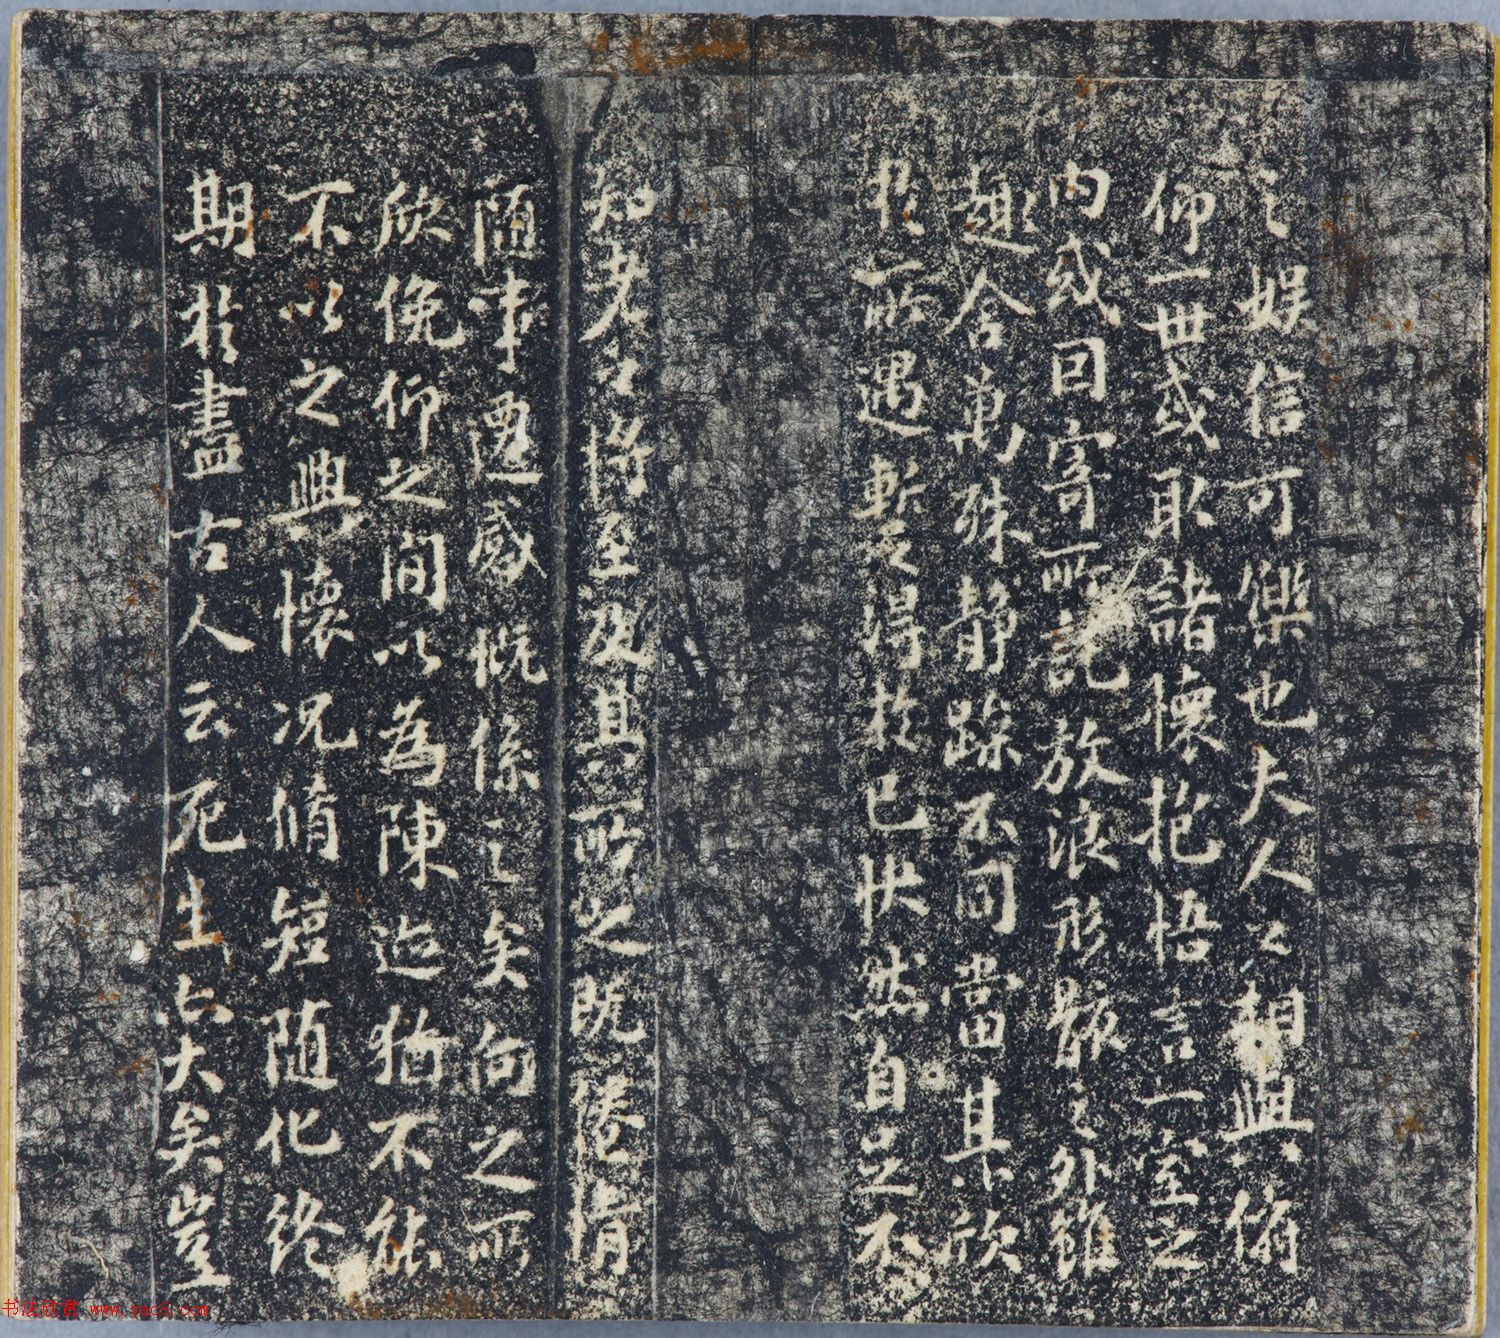 之娛信可樂也夫人之相與俯
仰一世或取諸懷抱悟言一室之
內或因寄所託放浪形骸之外雖
趣舍萬殊靜躁不同當其欣
於所遇蹔得於己快然自足不
知老之將至及其所之既惓情
隨事遷感慨係之矣向之所
欣俛仰之間以為陳迹猶不能
不以之興懷況脩短隨化終
期於盡古人云死生亦大矣豈
书法欣赏 www.yac8.com